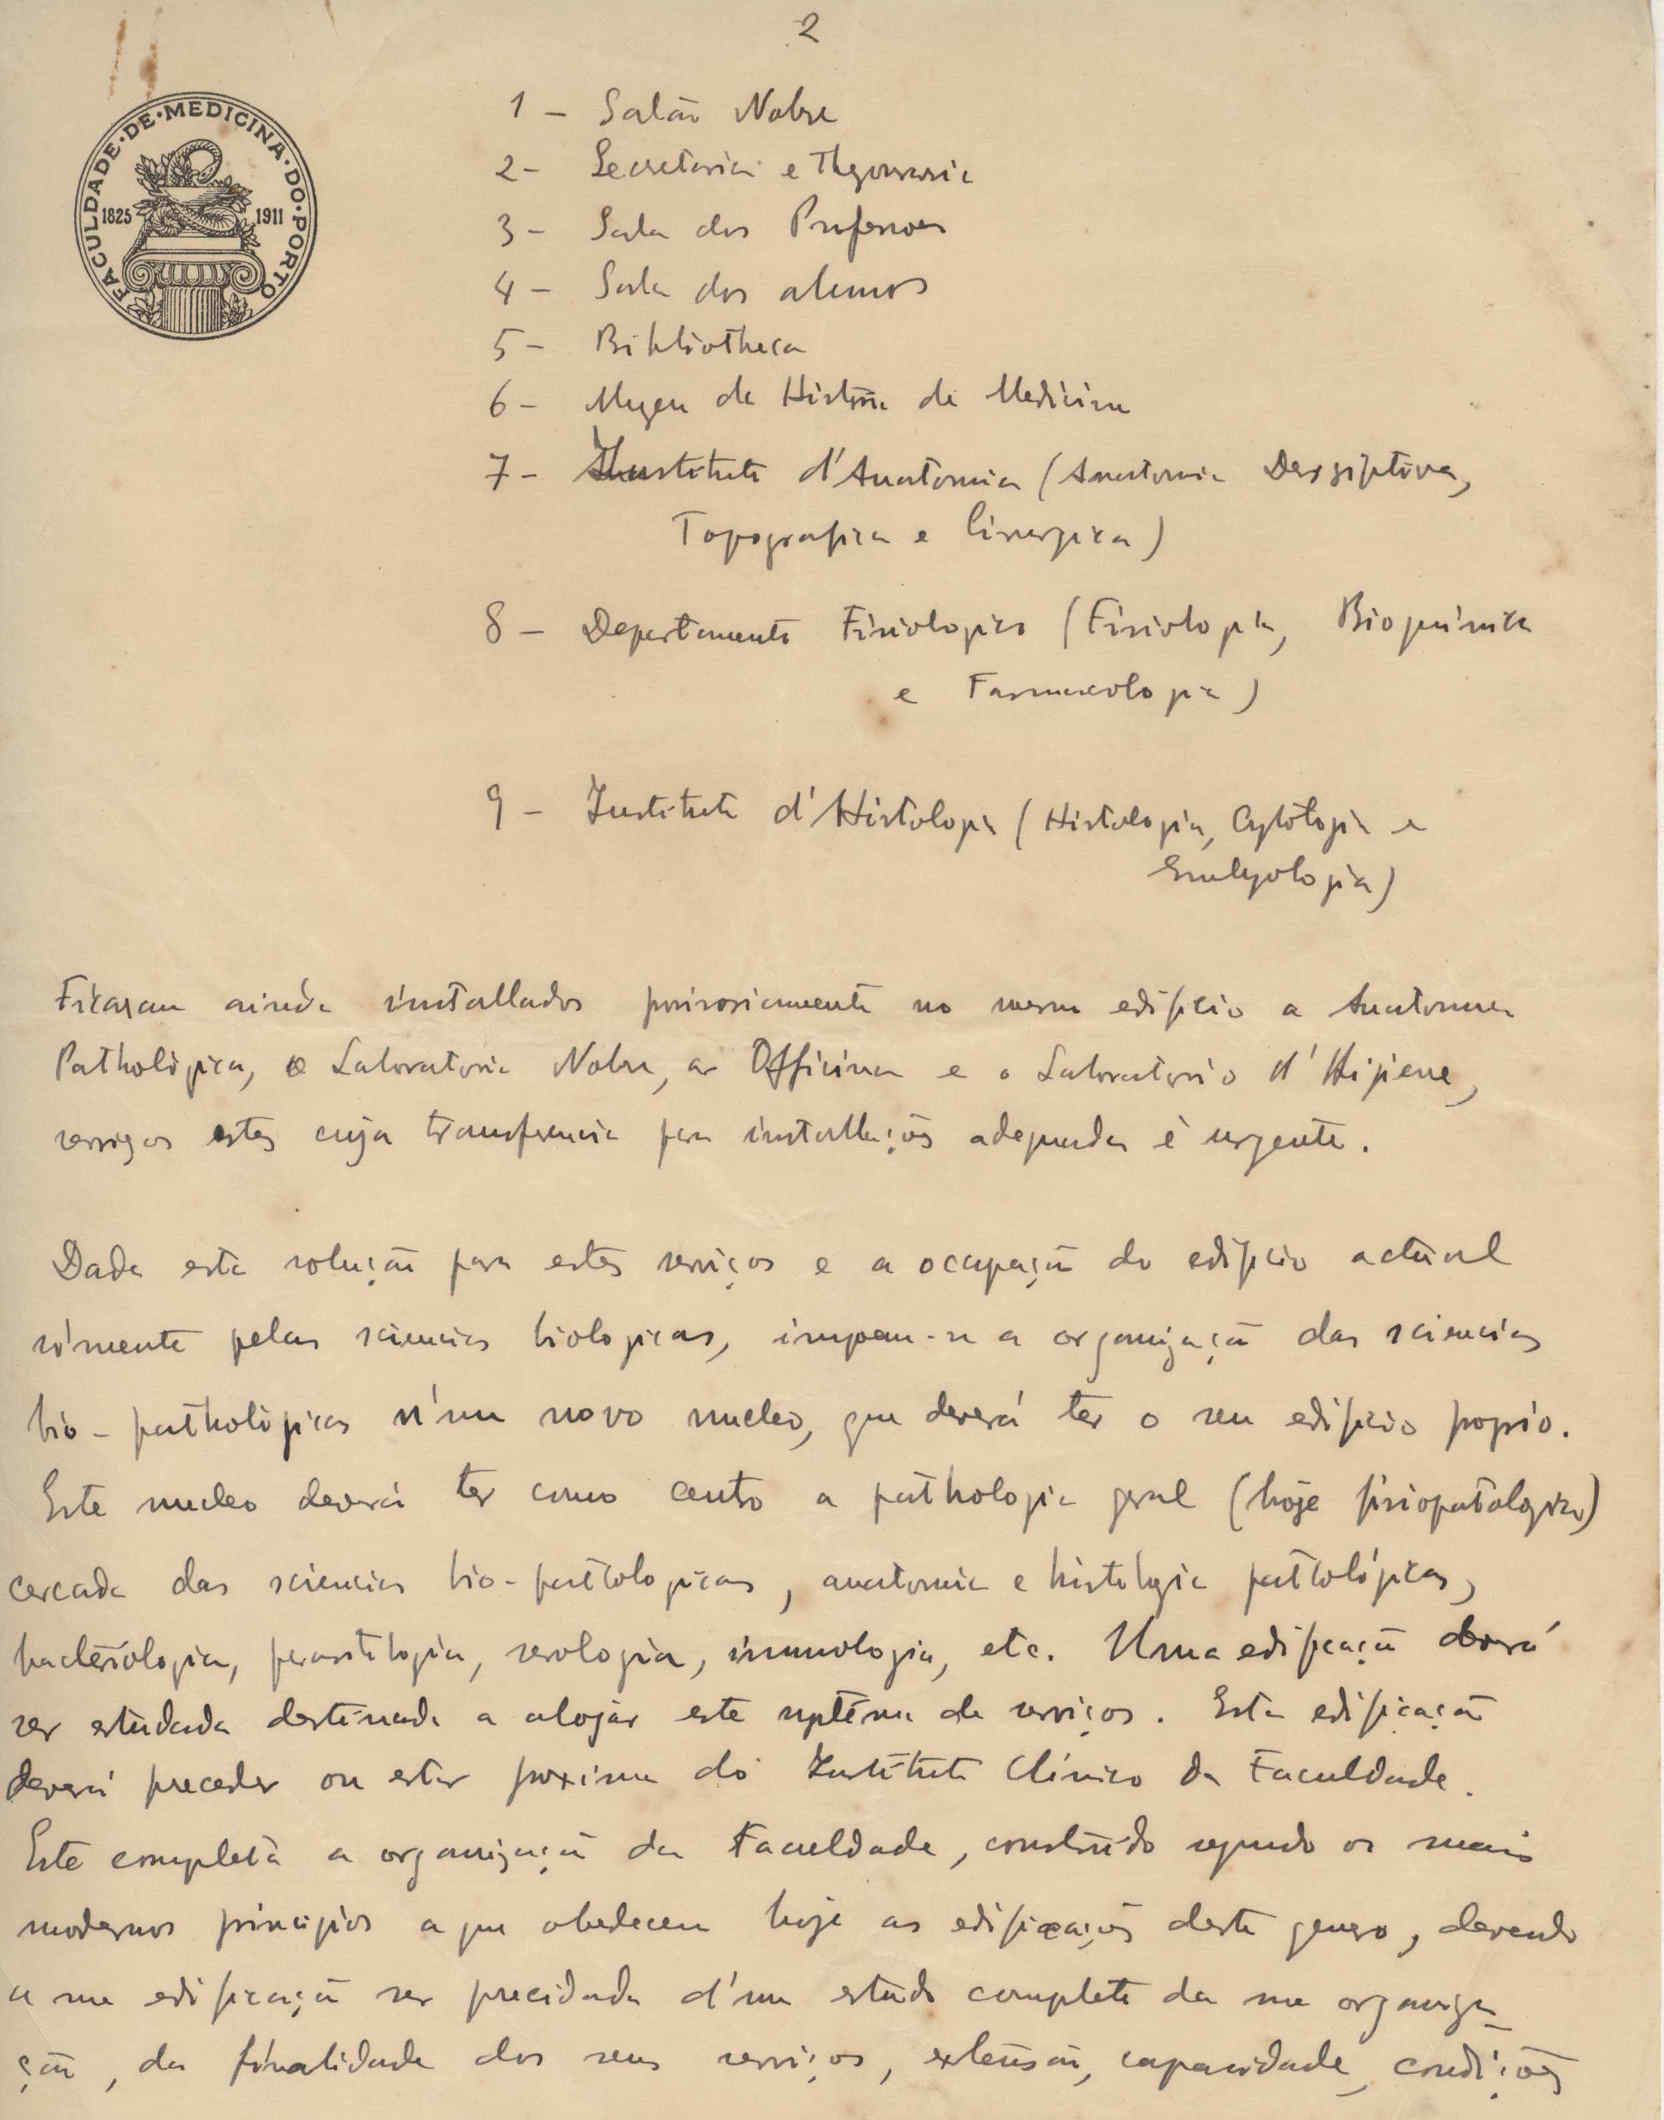 2
FACULDADE·DE·MEDICINA·DO·PORTO
1825 1911
1 – Salão Nobre
2 – Secretaria e Thezouraria
3 – Sala dos Professores
4 – Sala dos alumnos
5 – Bibliotheca
6 – Muzeu de Historia da Medicina
7 – Instituto d'Anatomia (Anatomia Descriptiva,
Topografica e Cirurgica)
8 – Departamento Fisiologico (Fisiologia, Bioquimica
e Farmacologia)
9 – Instituto d'Histologia (Histologia, Cytologia e
Embryologia)
Ficaram ainda installados provisoriamente no mesmo edificio a Anatomia
Pathológica, o Laboratorio Nobre, as Officinas e o Laboratorio d'Higiene,
serviços estes cuja transferencia para installações adequadas é urgente.
Dada esta solução para estes serviços e a occupação do edificio actual
sómente pelas sciencias biologicas, impõem-se a organização das sciencias
bio-pathològicas n'um novo nucleo, que deverá ter o seu edificio proprio.
Este nucleo deverá ter como centro a pathologia geral (hoje fisiopatologia)
cercada das sciencias bio-pathologicas, anatomia e histologia pathológicas,
bacteriologia, parasitologia, serologia, immunologia, etc. Uma edificação deverá
ser estudada destinada a alojar este systema de serviços. Esta edificação
deverá preceder ou estar proxima do Instituto Clinico da Faculdade.
Este completa a organização da Faculdade, construido segundo os mais
modernos principios a que obedecem hoje as edificações deste genero, devendo
a sua edificação ser precidida d'um estudo completo da sua organiza-
ção, da finalidade dos seus serviços, extensão, capacidade, condições